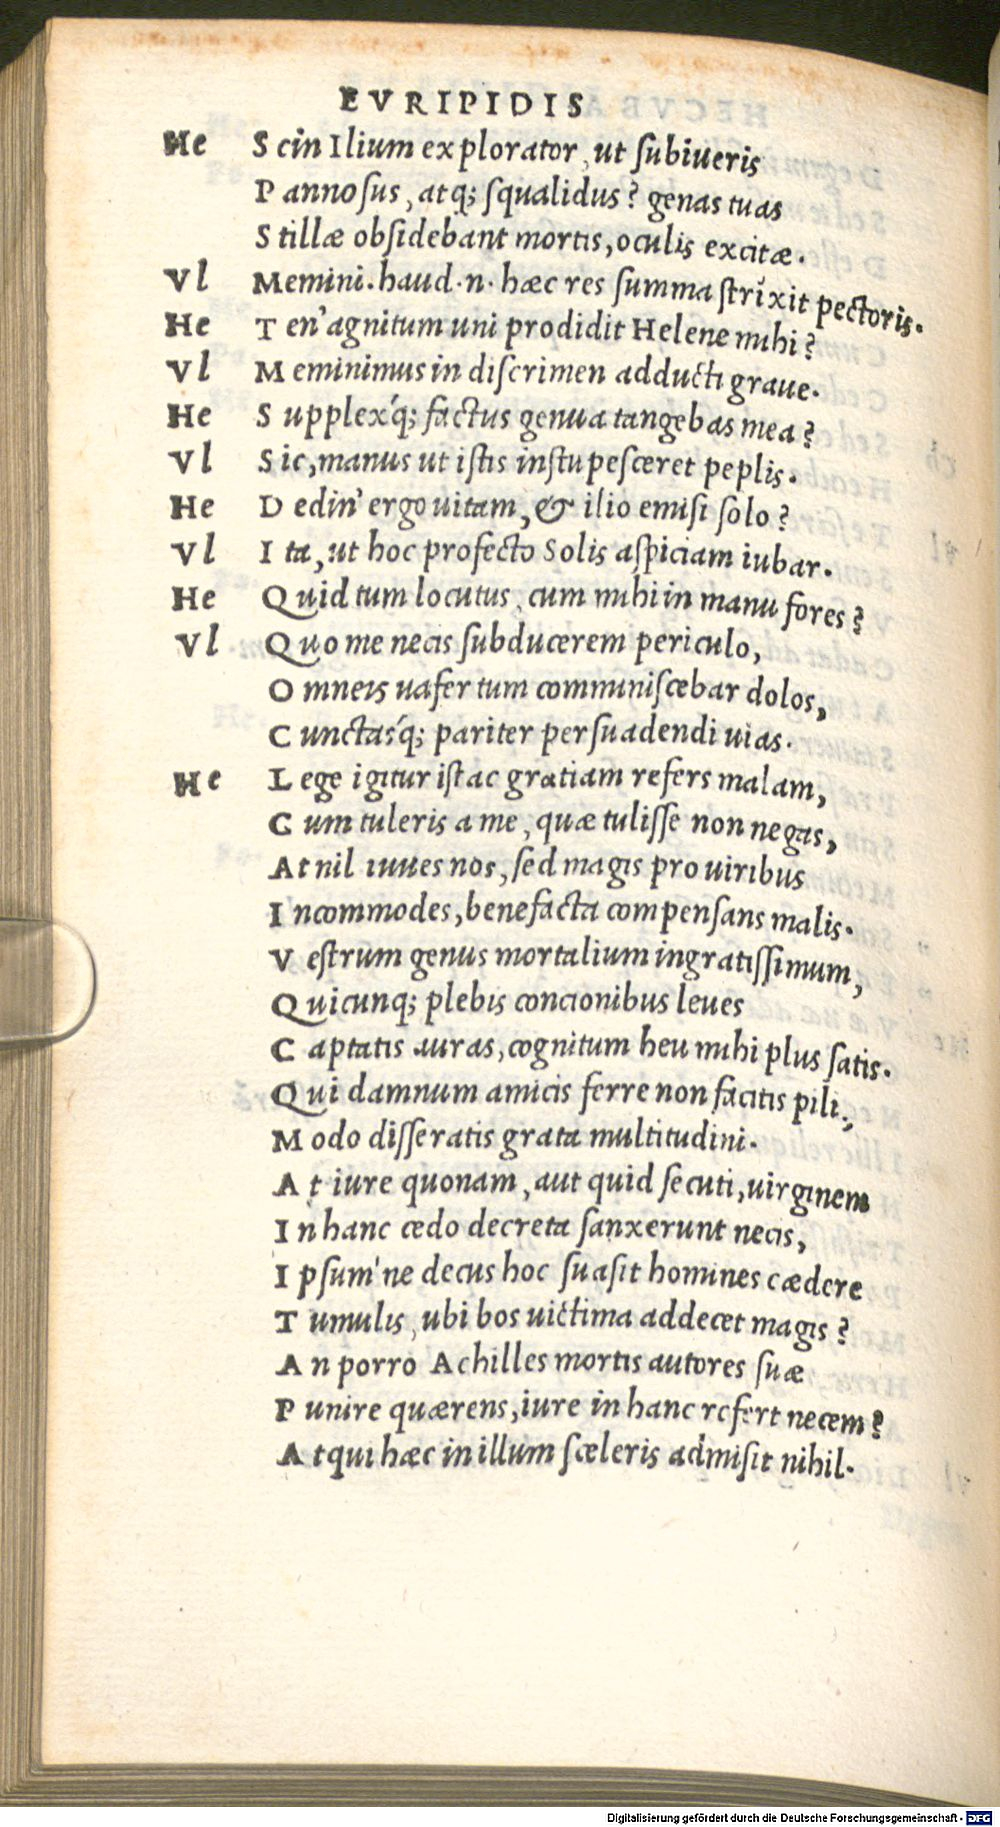 EVRIPIDIS
He Scin Ilium explorator, ut subiueris
Pannosus, atq; squalidus? genas tuas
Stillæ obsidebant mortis, oculis excitæ.
Vl Memini. haud .n. hæc res summa strixit pectoris.
He Ten' agnitum uni prodidit Helene mihi?
Vl Meminimus in discrimen adducti graue.
He Supplex'q; factus genua tangebas mea?
Vl Sic, manus ut istis instupesceret peplis.
He Dedin' ergo uitam, & ilio emisi solo?
Vl Ita, ut hoc profecto Solis aspiciam iubar.
He Quid tum locutus, cum mihi in manu fores?
Vl Quo me necis subducerem periculo,
Omneis uafer tum comminiscebar dolos,
Cunctas'q; pariter persuadendi uias.
He Lege igitur istac gratiam refers malam,
Cum tuleris a me, quæ tulisse non negas,
At nil iuues nos, sed magis pro uiribus
Incommodes, benefacta compensans malis.
Vestrum genus mortalium ingratissimum,
Quicunq; plebis concionibus leues
Captatis auras, cognitum heu mihi plus satis.
Qui damnum amicis ferre non facitis pili,
Modo disseratis grata multitudini.
At iure quonam, aut quid secuti, uirginem
In hanc cedo decreta sanxerunt necis,
Ipsum'ne decus hoc suasit homines cædere
Tumulis, ubi bos uictima addecet magis?
An porro Achilles mortis autores suæ
Punire quærens, iure in hanc refert necem?
Atqui hæc in illum sceleris admisit nihil.
Digitalisierung gefördert durch die Deutsche Forschungsgemeinschaft - DFG